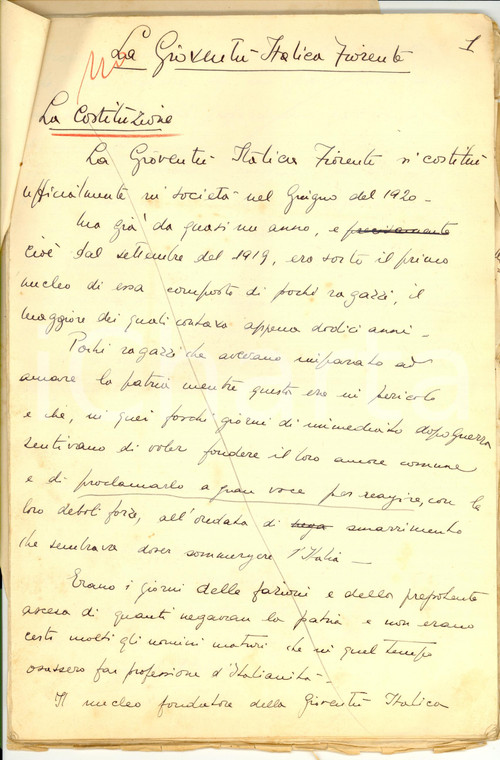 1
La Gioventù Italica Fiorente
La Costituzione
La Gioventù Italica Fiorente si costituì
ufficialmente in società nel Giugno del 1920 -
Ma già da quasi un anno, e precisamente
cioè dal settembre del 1919, era sorto il primo
nucleo di essa composto di pochi ragazzi, il
maggiore dei quali contava appena dodici anni -
Pochi ragazzi che avevano imparato ad
amare la patria mentre questa era in pericolo
e che, in quei foschi giorni di immediato dopo guerra
sentivano di voler fondere il loro amore comune
e di proclamarlo a gran voce per reagire, con le
loro deboli forze, all'ondata di smarrimento
che sembrava dover sommergere l'Italia -
Erano i giorni delle fazioni e della prepotente
ascesa di quanti negavan la patria e non erano
certo molti gli uomini maturi che in quel tempo
osassero far professione d'italianità -
Il nucleo fondatore della Gioventù Italica